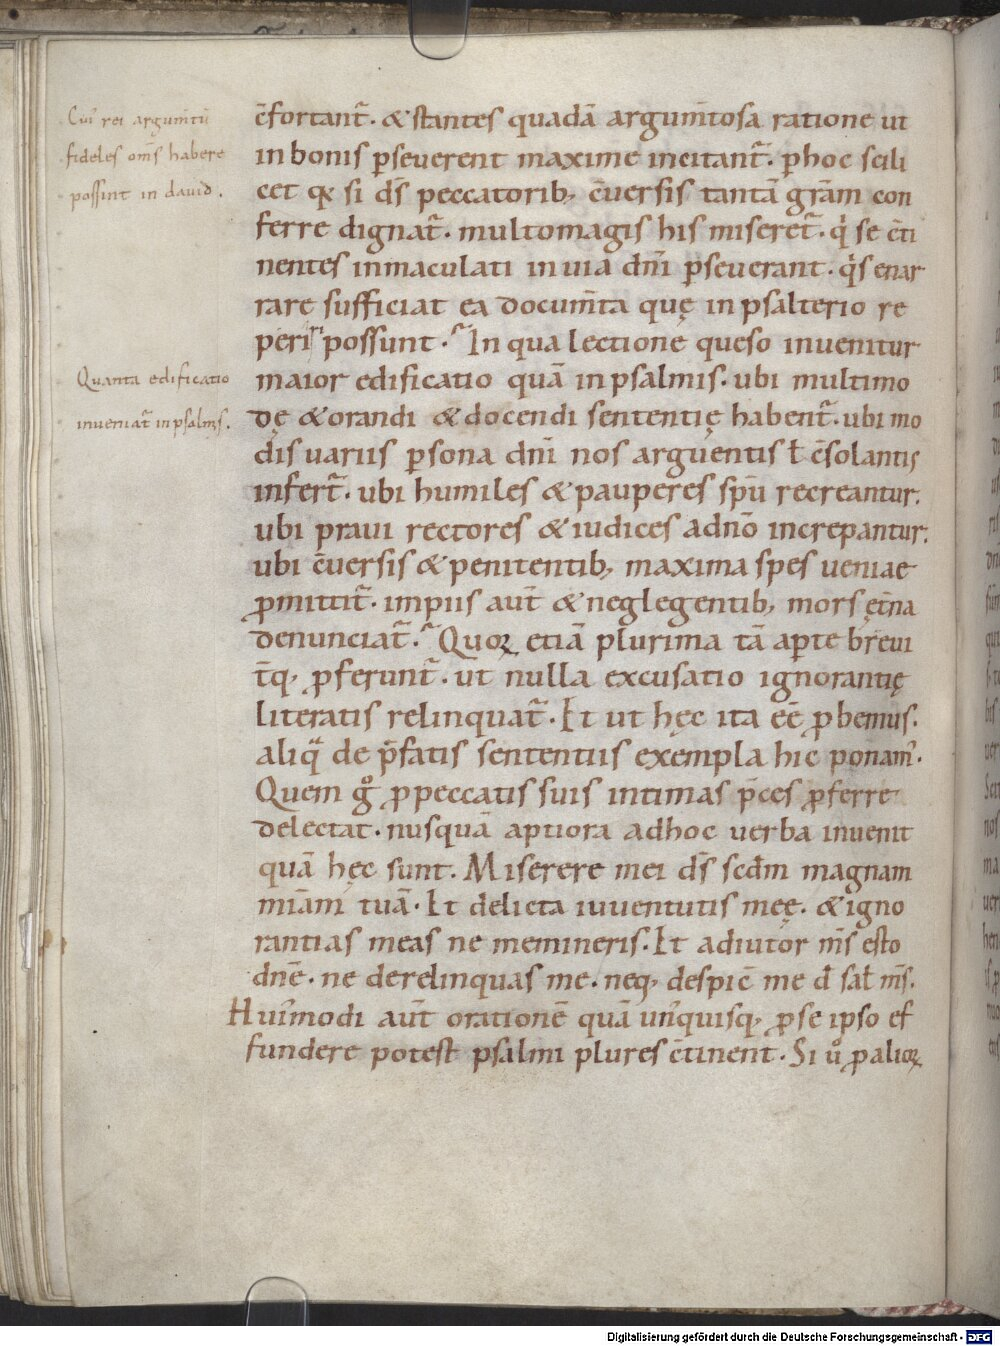 Cui᷒ rei argum̅tu̅
fideles om̅s habere
possint in david.
Quanta edificatio
inveniat᷒ in psalmis.
c̅fortant᷒. & stantes quada̅ argum̅tosa ratione ut
in bonis ꝑseuerent maxime incitant᷒. ꝑ hoc scili
cet qꝛ si d̅s peccatorib; c̅uersis tanta̅ gr̅am con
ferre dignat᷒. multomagis his miseret᷒. qⁱ se c̅ti
nentes inmaculati in uia dn̅i ꝑseuerant. qⁱs enar
rare sufficiat ea docum̅ta quę in psalterio re
periri possunt. In qua lectione queso inuenitur
maior edificatio qua̅ in psalmis. ubi multimo
dę & orandi & docendi sententię habent᷒. ubi mo
dis variis ꝑsona dn̅i nos arguentis ł c̅solantis
infert᷒. ubi humiles & pauperes sp̅u recreantur.
ubi praui rectores & iudices a dn̅o increpantur.
ubi c̅uersis & penitentib; maxima spes ueniae
ꝓmittit᷒. impiis aut̅ & neglegentib; mors ęt̅na
denunciat᷒. Quoꝝ etia̅ plurima ta̅ aꝑte breui
t̅q; ꝓferunt᷒. ut nulla excusatio ignorantię
literatis relinquat᷒. Et ut hęc ita ee̅ ꝓbemus.
aliqᵃ de p̅fatis sententiis exempla hic ponam᷒.
Quem gͦ ꝓ peccatis suis intimas p̅ces ꝓferre
delectat. nusqua̅ aptiora ad hoc uerba inuenit
qua̅ hęc sunt. Miserere mei d̅s scd̅m magnam
mia̅m tua̅. Et delicta iuuentutis meę. & igno
rantias meas ne memineris. Et adiutor m̅s esto
dn̅e. ne derelinquas me. neq; despic̅ me d̅ sał m̅s.
Hui᷒modi aut̅ oratione̅ qua̅ un᷒quisq; ꝓ se ipso ef
fundere potest psalmi plures c̅tinent. Si uͦ ꝓ alioꝝ
Digitalisierung gefördert durch die Deutsche Forschungsgemeinschaft - DFG